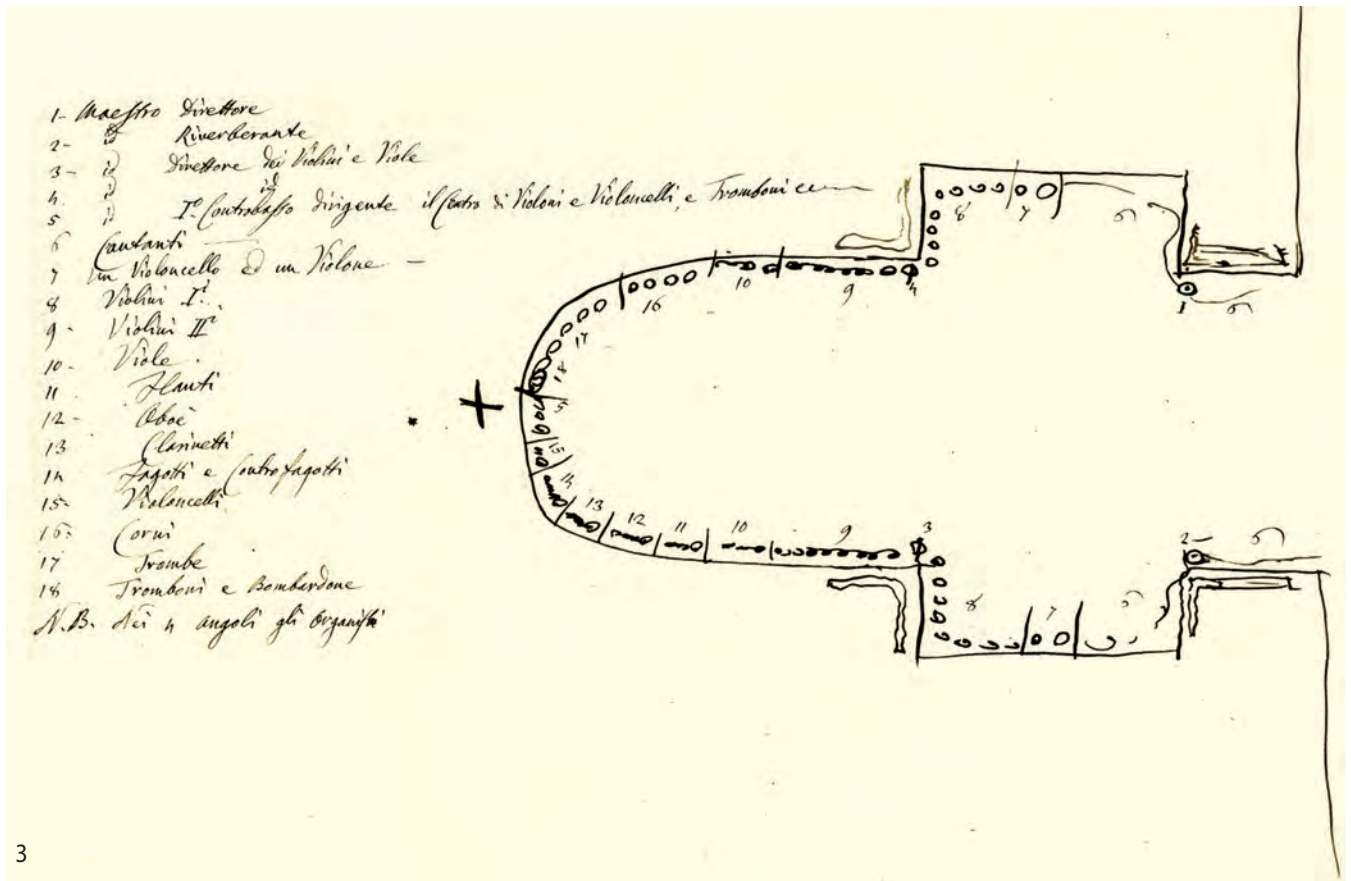 1- Maestro Direttore
2- id Riverberante
3- id Direttore dei Violini e Viole
4. id id
5 id I.º Contrabasso dirigente il Centro di Violoni e Violoncelli, e Tromboni
6 Cantanti
7 un Violoncello ed un Violone -
8 Violini I.i
9- Violini II.i
10- Viole.
11 Flauti
12- Oboè
13 Clarinetti
14 Fagotti e Controfagotti
15- Violoncelli
16- Corni
17 Trombe
18 Tromboni e Bombardone
N.B. Nei 4 angoli gli Organisti
8 7 6
16 10 9 4 1 6
17
18
5
15
14
13 12 11 10 9 3 2- 6
8 7 6
3